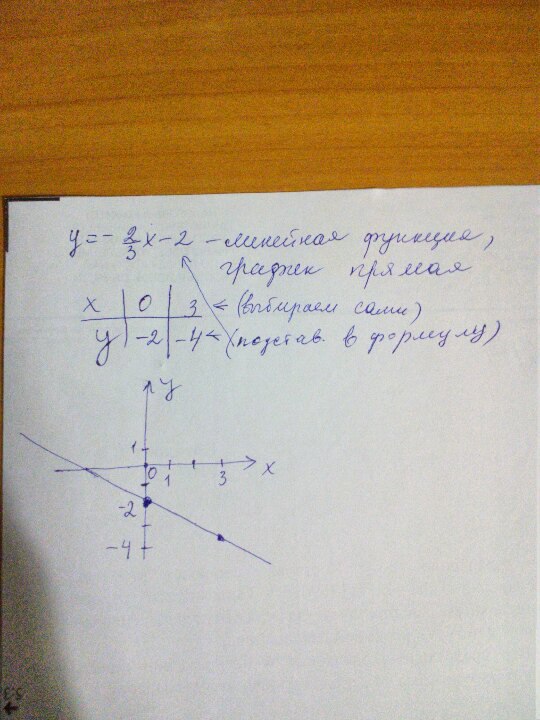 y = - 2/3 x - 2 - линейная функция,
график прямая
x | 0 | 3 ← (выбираем сами)
y | -2 | -4 ← (подстав. в формулу)
y
1
0 1 3 x
-2
-4